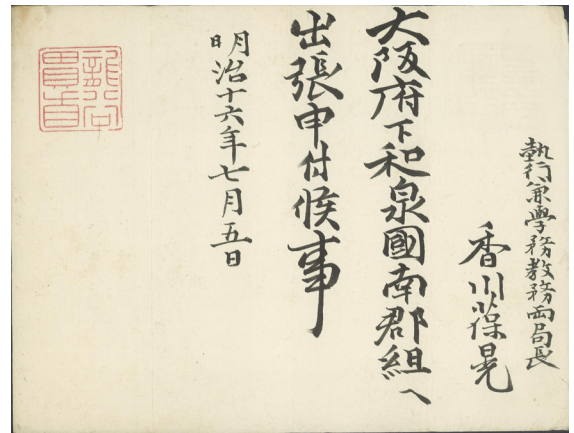 執行兼學務教務両局長
香川葆晃
大阪府下和泉國南郡組へ
出張申付候事
明治十六年七月五日